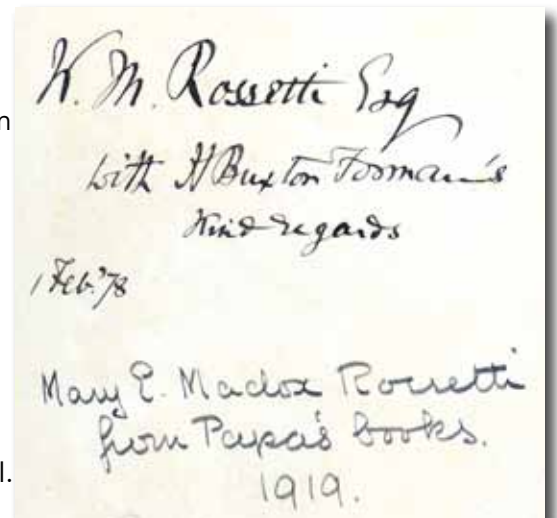 W. M. Rossetti Esq
with H Buxton Forman's
Kind regards
1 Feb. '78
Mary E. Madox Rossetti
from Papa's books.
1919.
n
l.